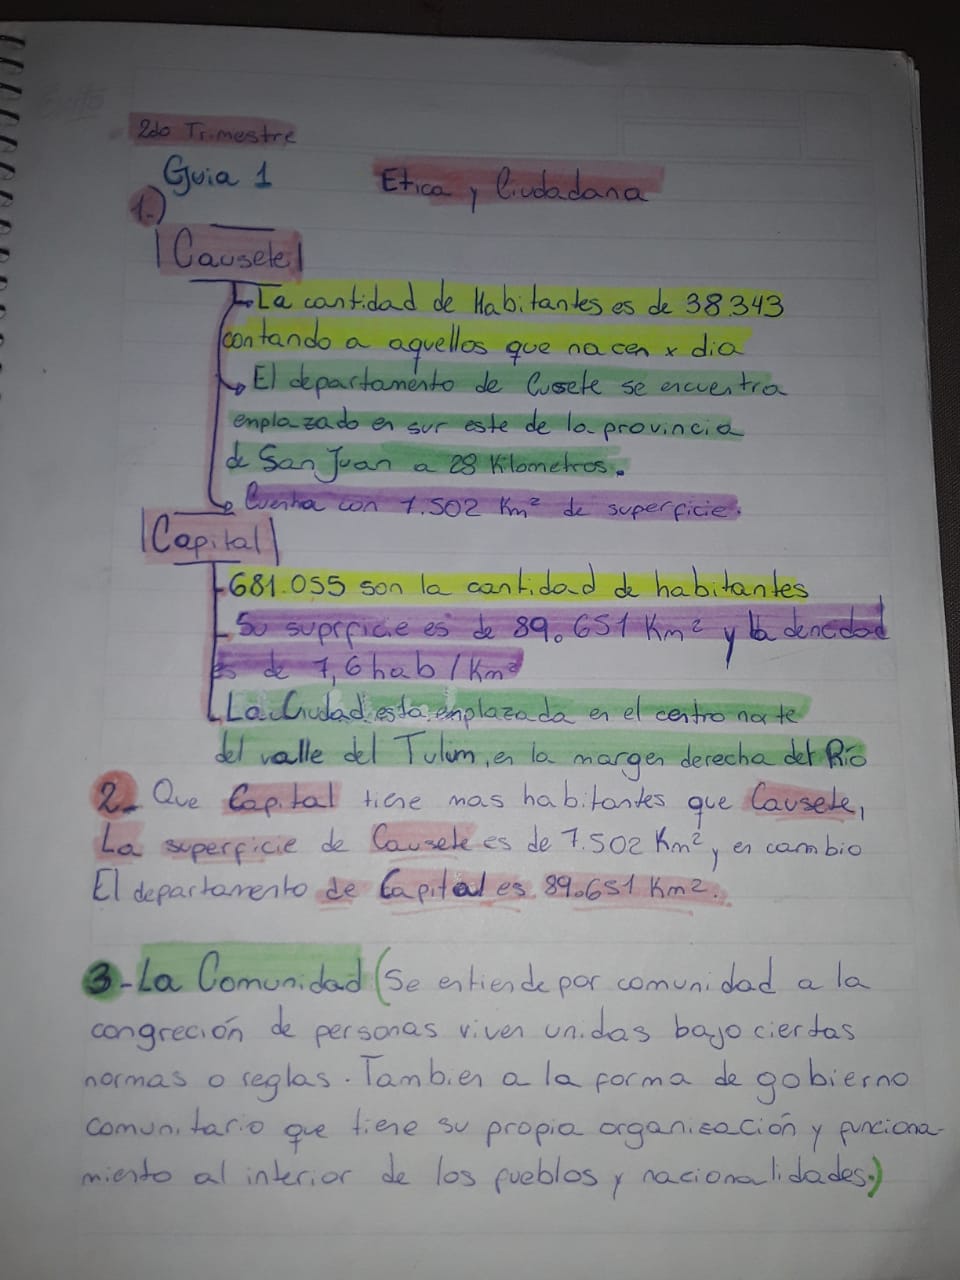 2do Trimestre
Guia 1 Etica y Ciudadana
1.)
Causete
La cantidad de Habitantes es de 38.343
contando a aquellos que nacen x dia
El departamento de Cusete se encuentra
emplazado en sur este de la provincia
de San Juan a 28 Kilometros.
Cuenta con 7.502 Km² de superficie.
Capital
681.055 son la cantidad de habitantes
Su suprficie es de 89.651 Km² y la dencidad
es de 7,6 hab / Km²
La Ciudad esta emplazada en el centro norte
del valle del Tulum, en la margen derecha del Río
2- Que Capital tiene mas habitantes que Causete,
La superficie de Causete es de 7.502 Km², en cambio
El departamento de Capital es 89.651 Km2.
3-La Comunidad (Se entiende por comunidad a la
congreción de personas viven unidas bajo ciertas
normas o reglas. Tambien a la forma de gobierno
comunitario que tiene su propia organisación y funciona-
miento al interior de los pueblos y nacionalidades.)